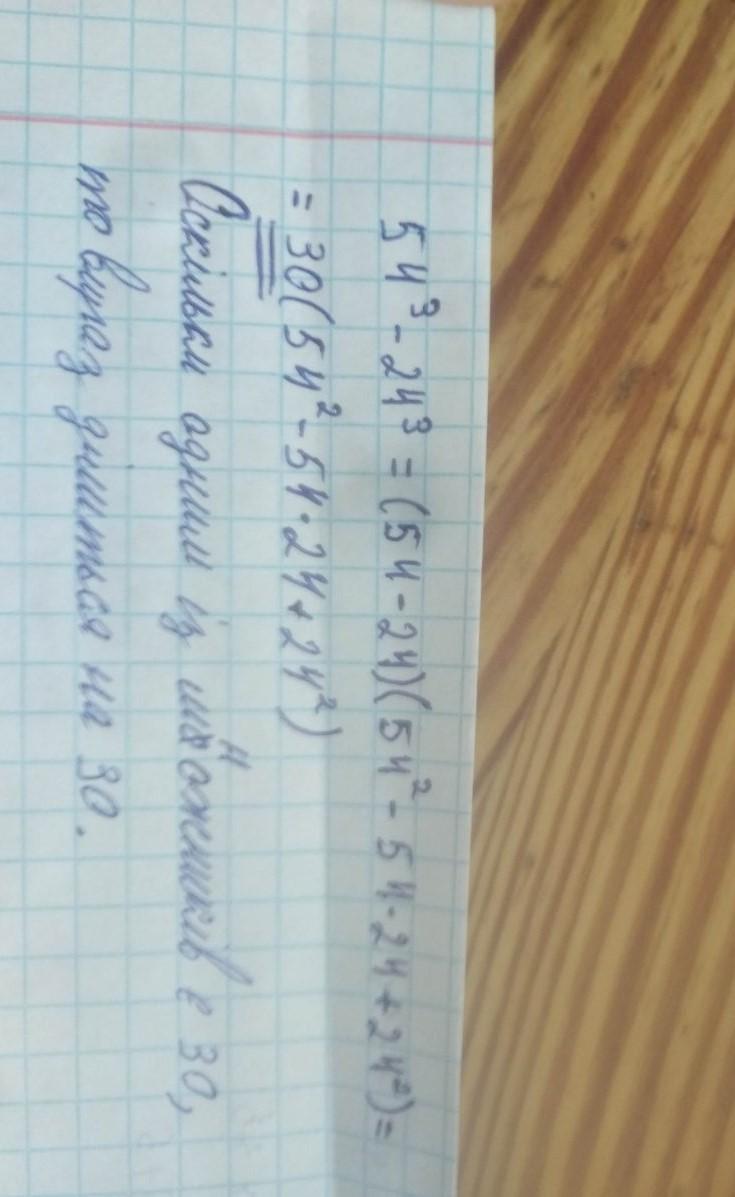 54³ - 24³ = (54 - 24)(54² - 54·24 + 24²) =
= 30(54² - 54·24 + 24²)
Оскільки одним із множників є 30,
то вираз ділиться на 30.